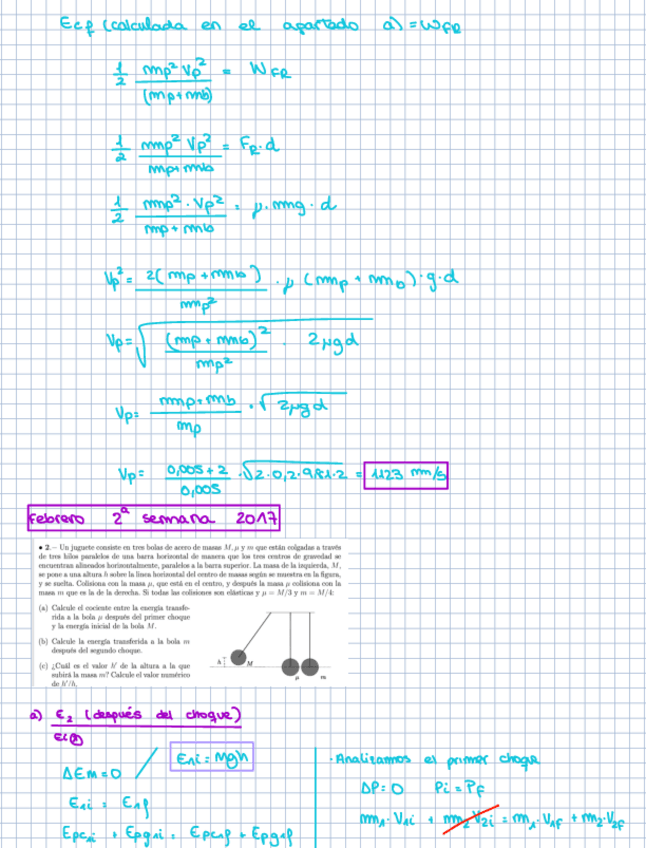 Ecf (calculada en el apartado a) = WFR
1/2 mp² Vp² / (mp+mb) = WFR
1/2 mp² Vp² / mp+mb = FR·d
1/2 mp² · Vp² / mp+mb = μ·mg·d
Vp² = 2(mp+mb) / mp² · μ (mp+mb)·g·d
Vp = √( (mp+mb)² / mp² · 2μgd )
Vp = mp+mb / mp · √2μgd
Vp = 0,005+2 / 0,005 · √2·0,2·9,81·2 = 1123 m/s
Febrero 2ª semana 2017
• 2.– Un juguete consiste en tres bolas de acero de masas M, μ y m que están colgadas a través
de tres hilos paralelos de una barra horizontal de manera que los tres centros de gravedad se
encuentran alineados horizontalmente, paralelos a la barra superior. La masa de la izquierda, M,
se pone a una altura h sobre la línea horizontal del centro de masas según se muestra en la figura,
y se suelta. Colisiona con la masa μ, que está en el centro, y después la masa μ colisiona con la
masa m que es la de la derecha. Si todas las colisiones son elásticas y μ = M/3 y m = M/4:
(a) Calcule el cociente entre la energía transfe-
rida a la bola μ después del primer choque
y la energía inicial de la bola M.
(b) Calcule la energía transferida a la bola m
después del segundo choque.
(c) ¿Cuál es el valor h' de la altura a la que
subirá la masa m? Calcule el valor numérico
de h'/h.
h M
μ m
a) E2 (después del choque)
E1i = Mgh
ΔEm = 0
E1i = E1f
Epc1i + Epg1i = Epc1f + Epg1f
· Analizamos el primer choque
ΔP = 0 Pi = Pf
m1·V1i + m2·V2i = m1·V1f + m2·V2f